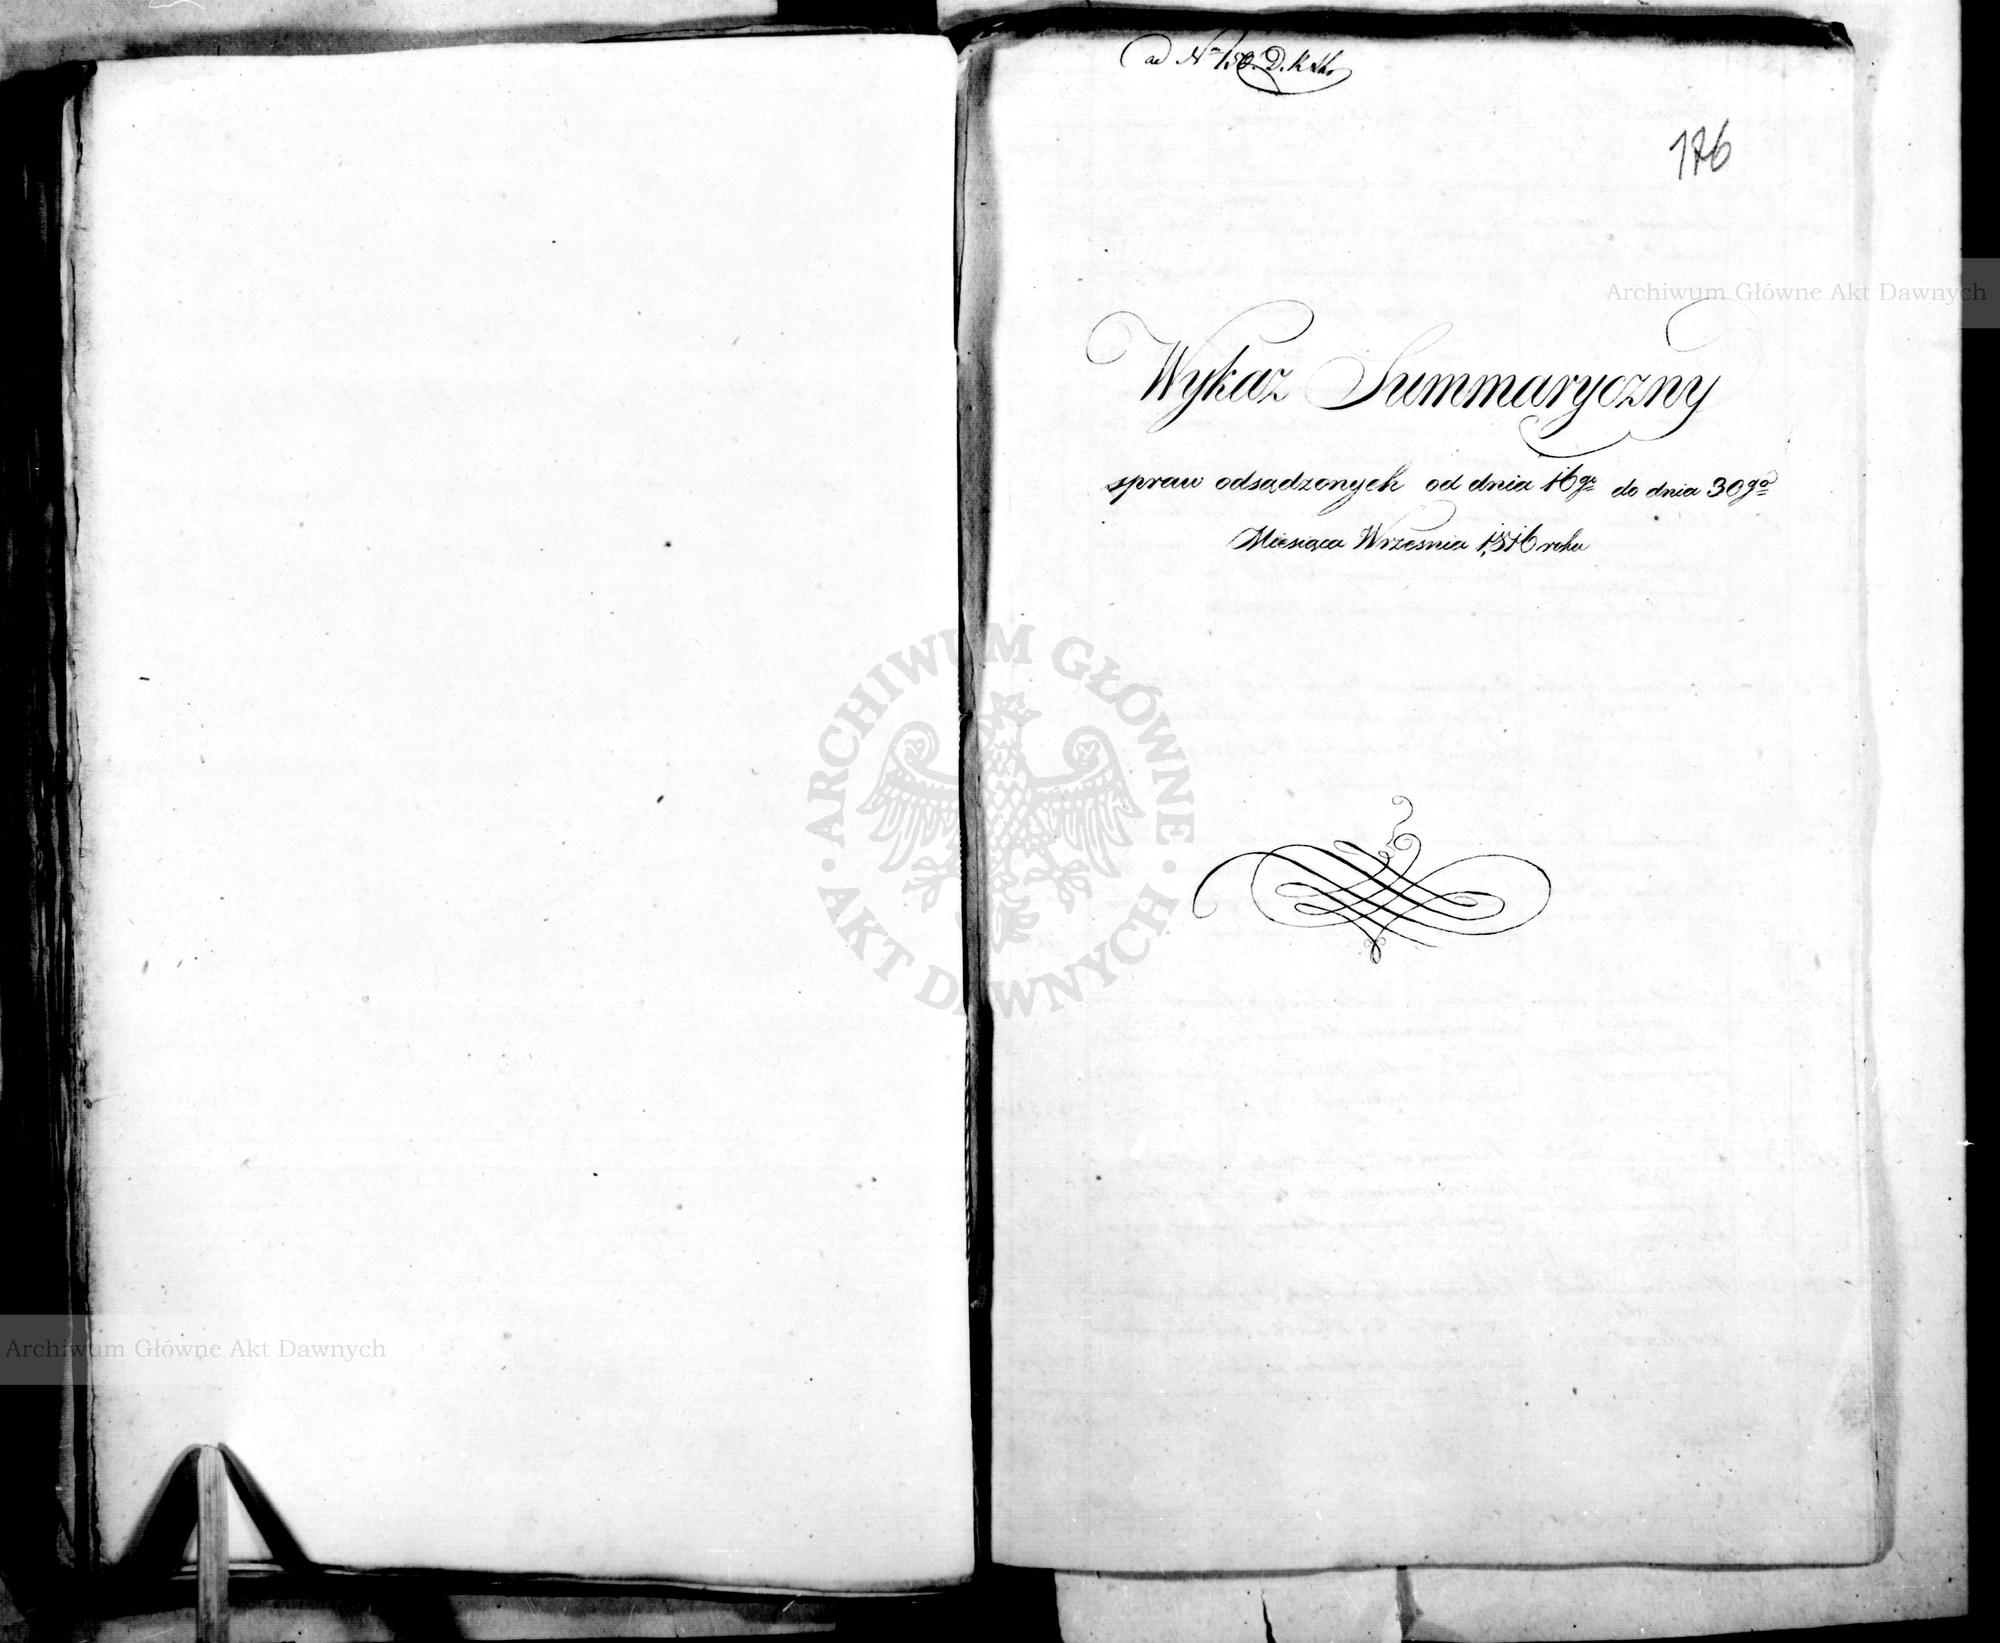 ad N° 150. D.
176
Wykaz Summaryczny
spraw odsądzonych od dnia 16go do dnia 30go
Miesiąca Września 1816 roku
Archiwum Główne Akt Dawnych
ARCHIWUM GŁÓWNE · AKT DAWNYCH ·
Archiwum Główne Akt Dawnych